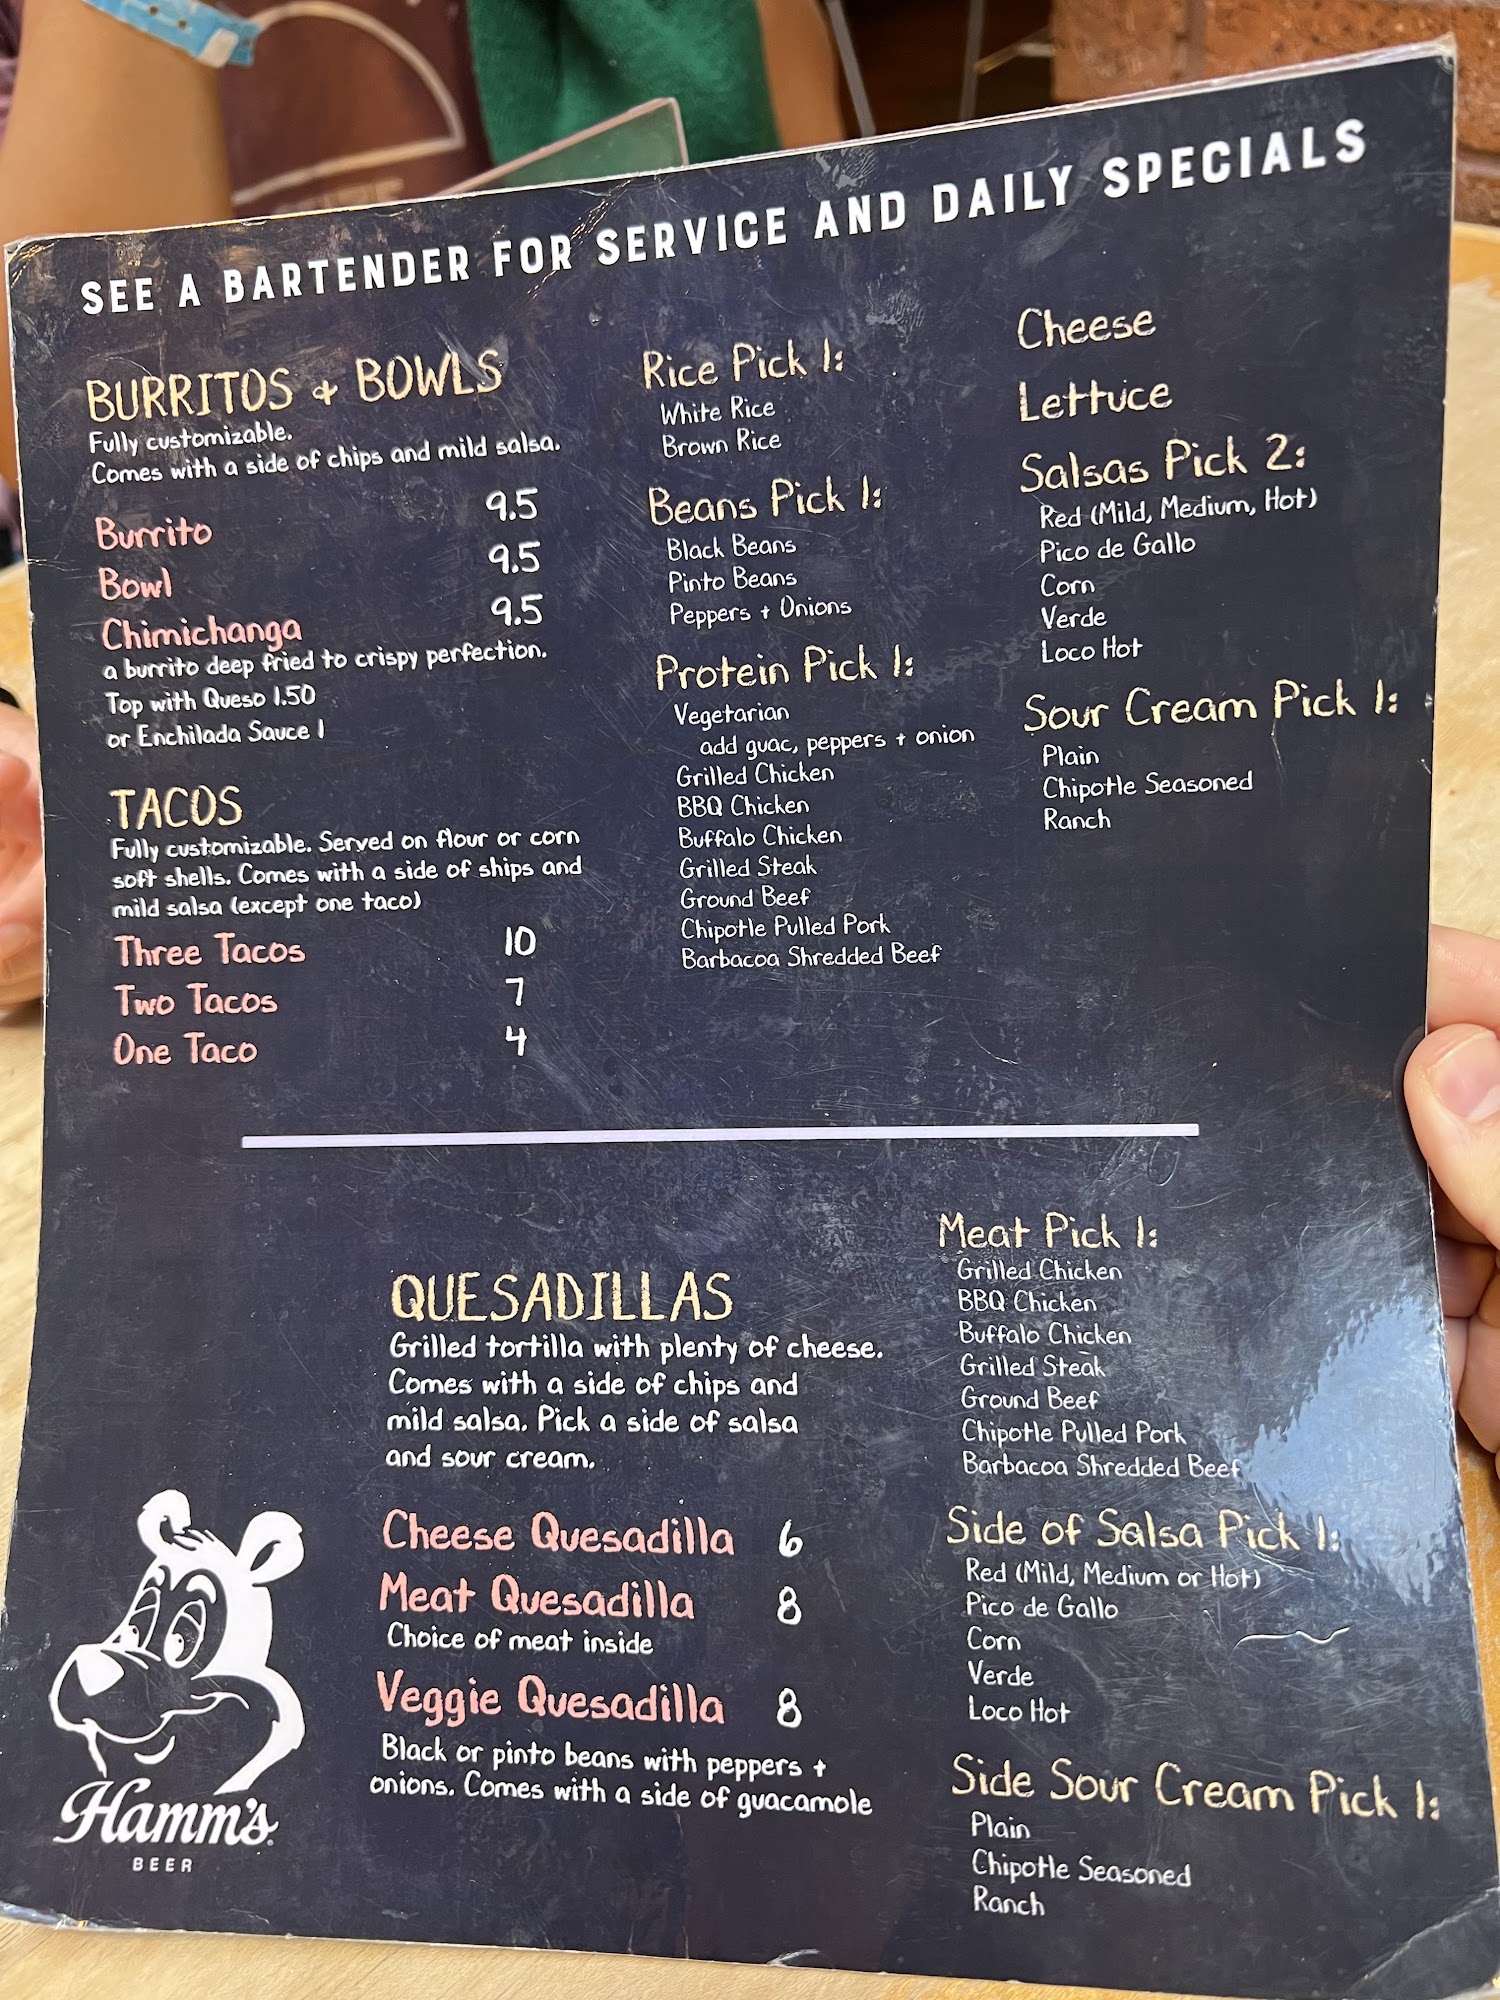 SEE A BARTENDER FOR SERVICE AND DAILY SPECIALS
BURRITOS + BOWLS
Fully customizable.
Comes with a side of chips and mild salsa.
Burrito 9.5
Bowl 9.5
Chimichanga 9.5
a burrito deep fried to crispy perfection.
Top with Queso 1.50
or Enchilada Sauce 1
TACOS
Fully customizable. Served on flour or corn
soft shells. Comes with a side of ships and
mild salsa (except one taco)
Three Tacos 10
Two Tacos 7
One Taco 4
Rice Pick 1:
White Rice
Brown Rice
Beans Pick 1:
Black Beans
Pinto Beans
Peppers + Onions
Protein Pick 1:
Vegetarian
add guac, peppers + onion
Grilled Chicken
BBQ Chicken
Buffalo Chicken
Grilled Steak
Ground Beef
Chipotle Pulled Pork
Barbacoa Shredded Beef
Cheese
Lettuce
Salsas Pick 2:
Red (Mild, Medium, Hot)
Pico de Gallo
Corn
Verde
Loco Hot
Sour Cream Pick 1:
Plain
Chipotle Seasoned
Ranch
QUESADILLAS
Grilled tortilla with plenty of cheese.
Comes with a side of chips and
mild salsa. Pick a side of salsa
and sour cream.
Cheese Quesadilla 6
Meat Quesadilla 8
Choice of meat inside
Veggie Quesadilla 8
Black or pinto beans with peppers +
onions. Comes with a side of guacamole
Meat Pick 1:
Grilled Chicken
BBQ Chicken
Buffalo Chicken
Grilled Steak
Ground Beef
Chipotle Pulled Pork
Barbacoa Shredded Beef
Side of Salsa Pick 1:
Red (Mild, Medium or Hot)
Pico de Gallo
Corn
Verde
Loco Hot
Side Sour Cream Pick 1:
Plain
Chipotle Seasoned
Ranch
Hamm's
BEER